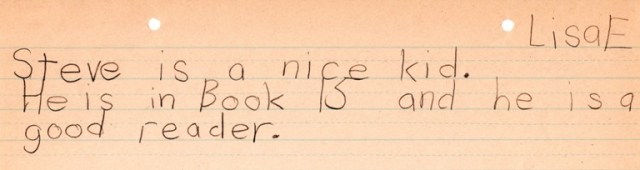 LisaE
Steve is a nice kid.
He is in Book 15 and he is a
good reader.